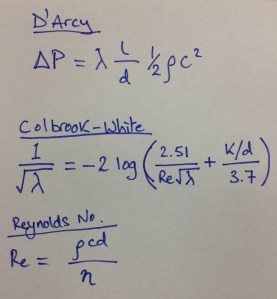 D'Arcy
ΔP = λ l/d ½ ρc²
Colbrook-White
1/√λ = -2 log(2.51/Re√λ + K/d/3.7)
Reynolds No.
Re = ρcd/η